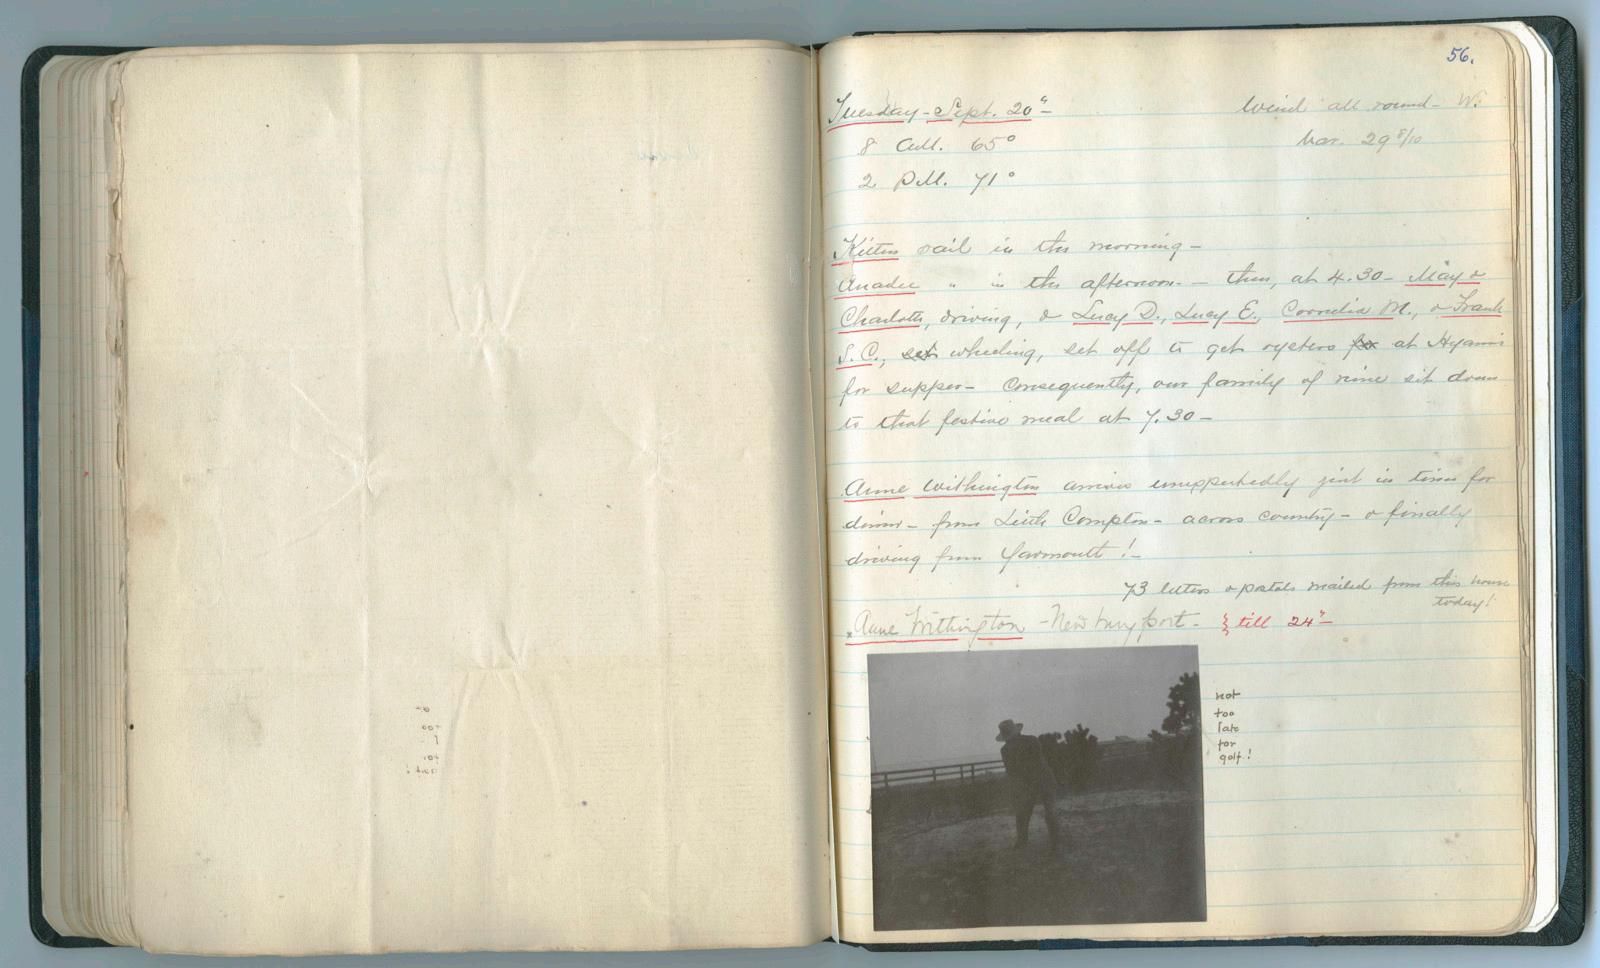 56.
Tuesday - Sept. 20th -
Wind all round - W.
8 A.M. 65°
Bar. 29 8/10
2 P.M. 71°
Kitten sail in the morning -
Anadee " in the afternoon. - then, at 4.30 - May &
Charlotte, driving, & Lucy D., Lucy E., Cornelia M., & Frank
S. C., set wheeling, set off to get oysters for at Hyannis
for supper - Consequently, our family of nine sit down
to that festive meal at 7.30 -
Anne Withington arrives unexpectedly just in time for
dinner - from Little Compton - across country - & finally
driving from Yarmouth! -
73 letters & postals mailed from this house
today!
x Anne Withington - Newburyport - } till 24th -
not
too
late
for
golf!